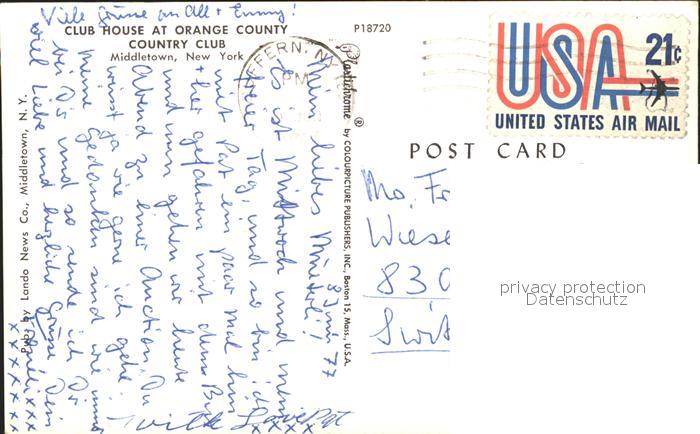 Viele Grüsse an Alle + Emmy!
CLUB HOUSE AT ORANGE COUNTY
COUNTRY CLUB
Middletown, New York
P18720
Pub. by Lando News Co., Middletown, N. Y.
Plastichrome ® by COLOURPICTURE PUBLISHERS, INC., Boston 15, Mass., U.S.A.
SUFFERN, NY
PM
USA
21c
UNITED STATES AIR MAIL
POST CARD
8 Juni 77
Mein liebes Müeterli!
Es ist Mittwoch und mein
freier Tag, und so bin ich
mit Pat ein paar mal hin
+ her gefahren mit dem Bus
und nun gehen wir heute
Abend zu einer Auction. Du
weisst ja wie gerne ich gehe!
Meine Gedanken sind wie immer
bei Dir und so sende ich Dir
viel Liebe und herzliche Grüsse Dein
xxxxxxx
with Love Pat
xxxx
Mo. Fr
Wiese
830
Swit
privacy protection
Datenschutz